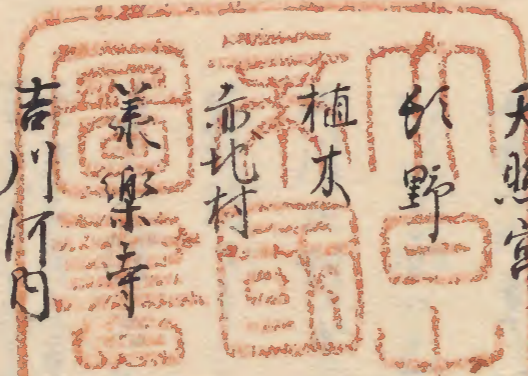 天照宮
頓野
植木
赤地村
美樂寺
吉川河内